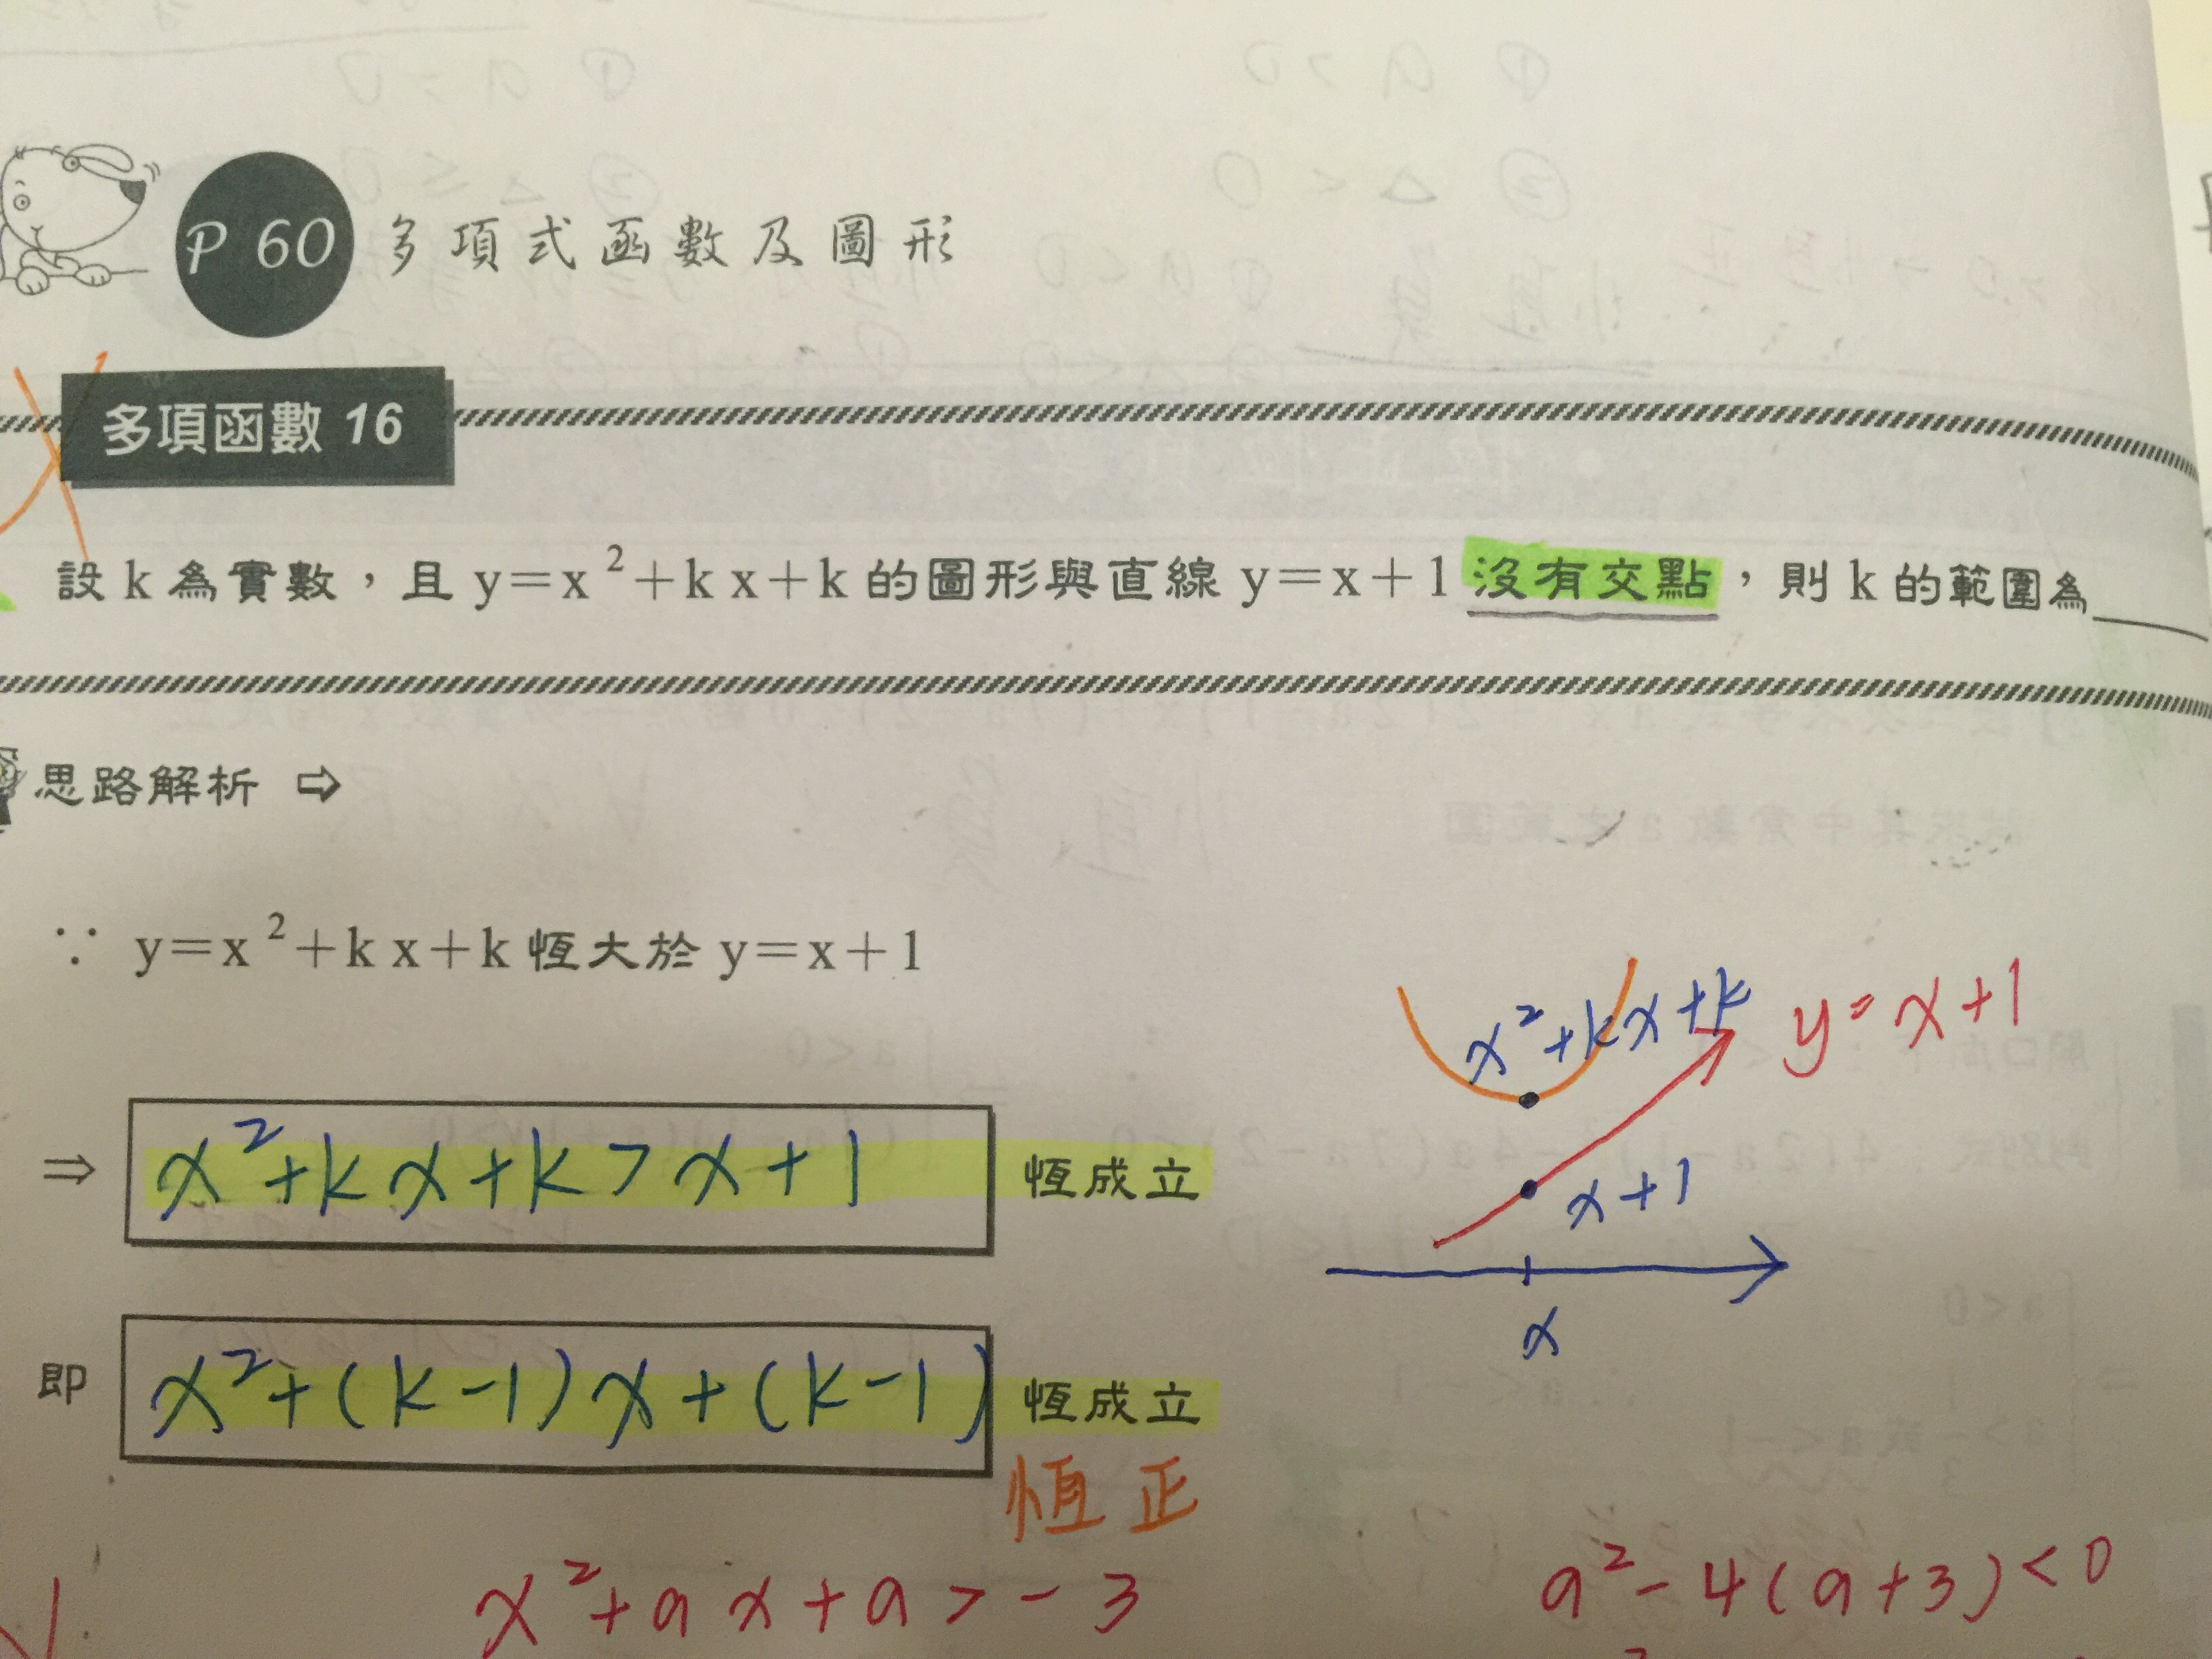 P 60 多項式函數及圖形
多項函數 16
設 k 為實數，且 y＝x²＋k x＋k 的圖形與直線 y＝x＋1 沒有交點，則 k 的範圍為
思路解析 ⇨
∵ y＝x²＋k x＋k 恆大於 y＝x＋1
x²+kx+k
y=x+1
⇒ x²+kx+k>x+1 恆成立
x+1
x
即 x²+(k-1)x+(k-1) 恆成立
恆正
x²+ax+a>-3
a²-4(a+3)<0